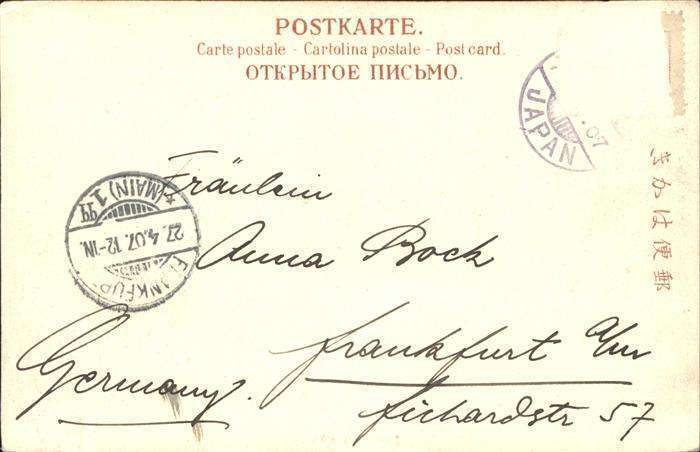 POSTKARTE.
Carte postale - Cartolina postale - Post card.
ОТКРЫТОЕ ПИСЬМО.
JAPAN
07
郵便はかき
(MAIN) 1
27.4.07.12-1N.
FRANKFUR
Fräulein
Anna Bock
Frankfurt a/m
Fichardstr 57
Germany.